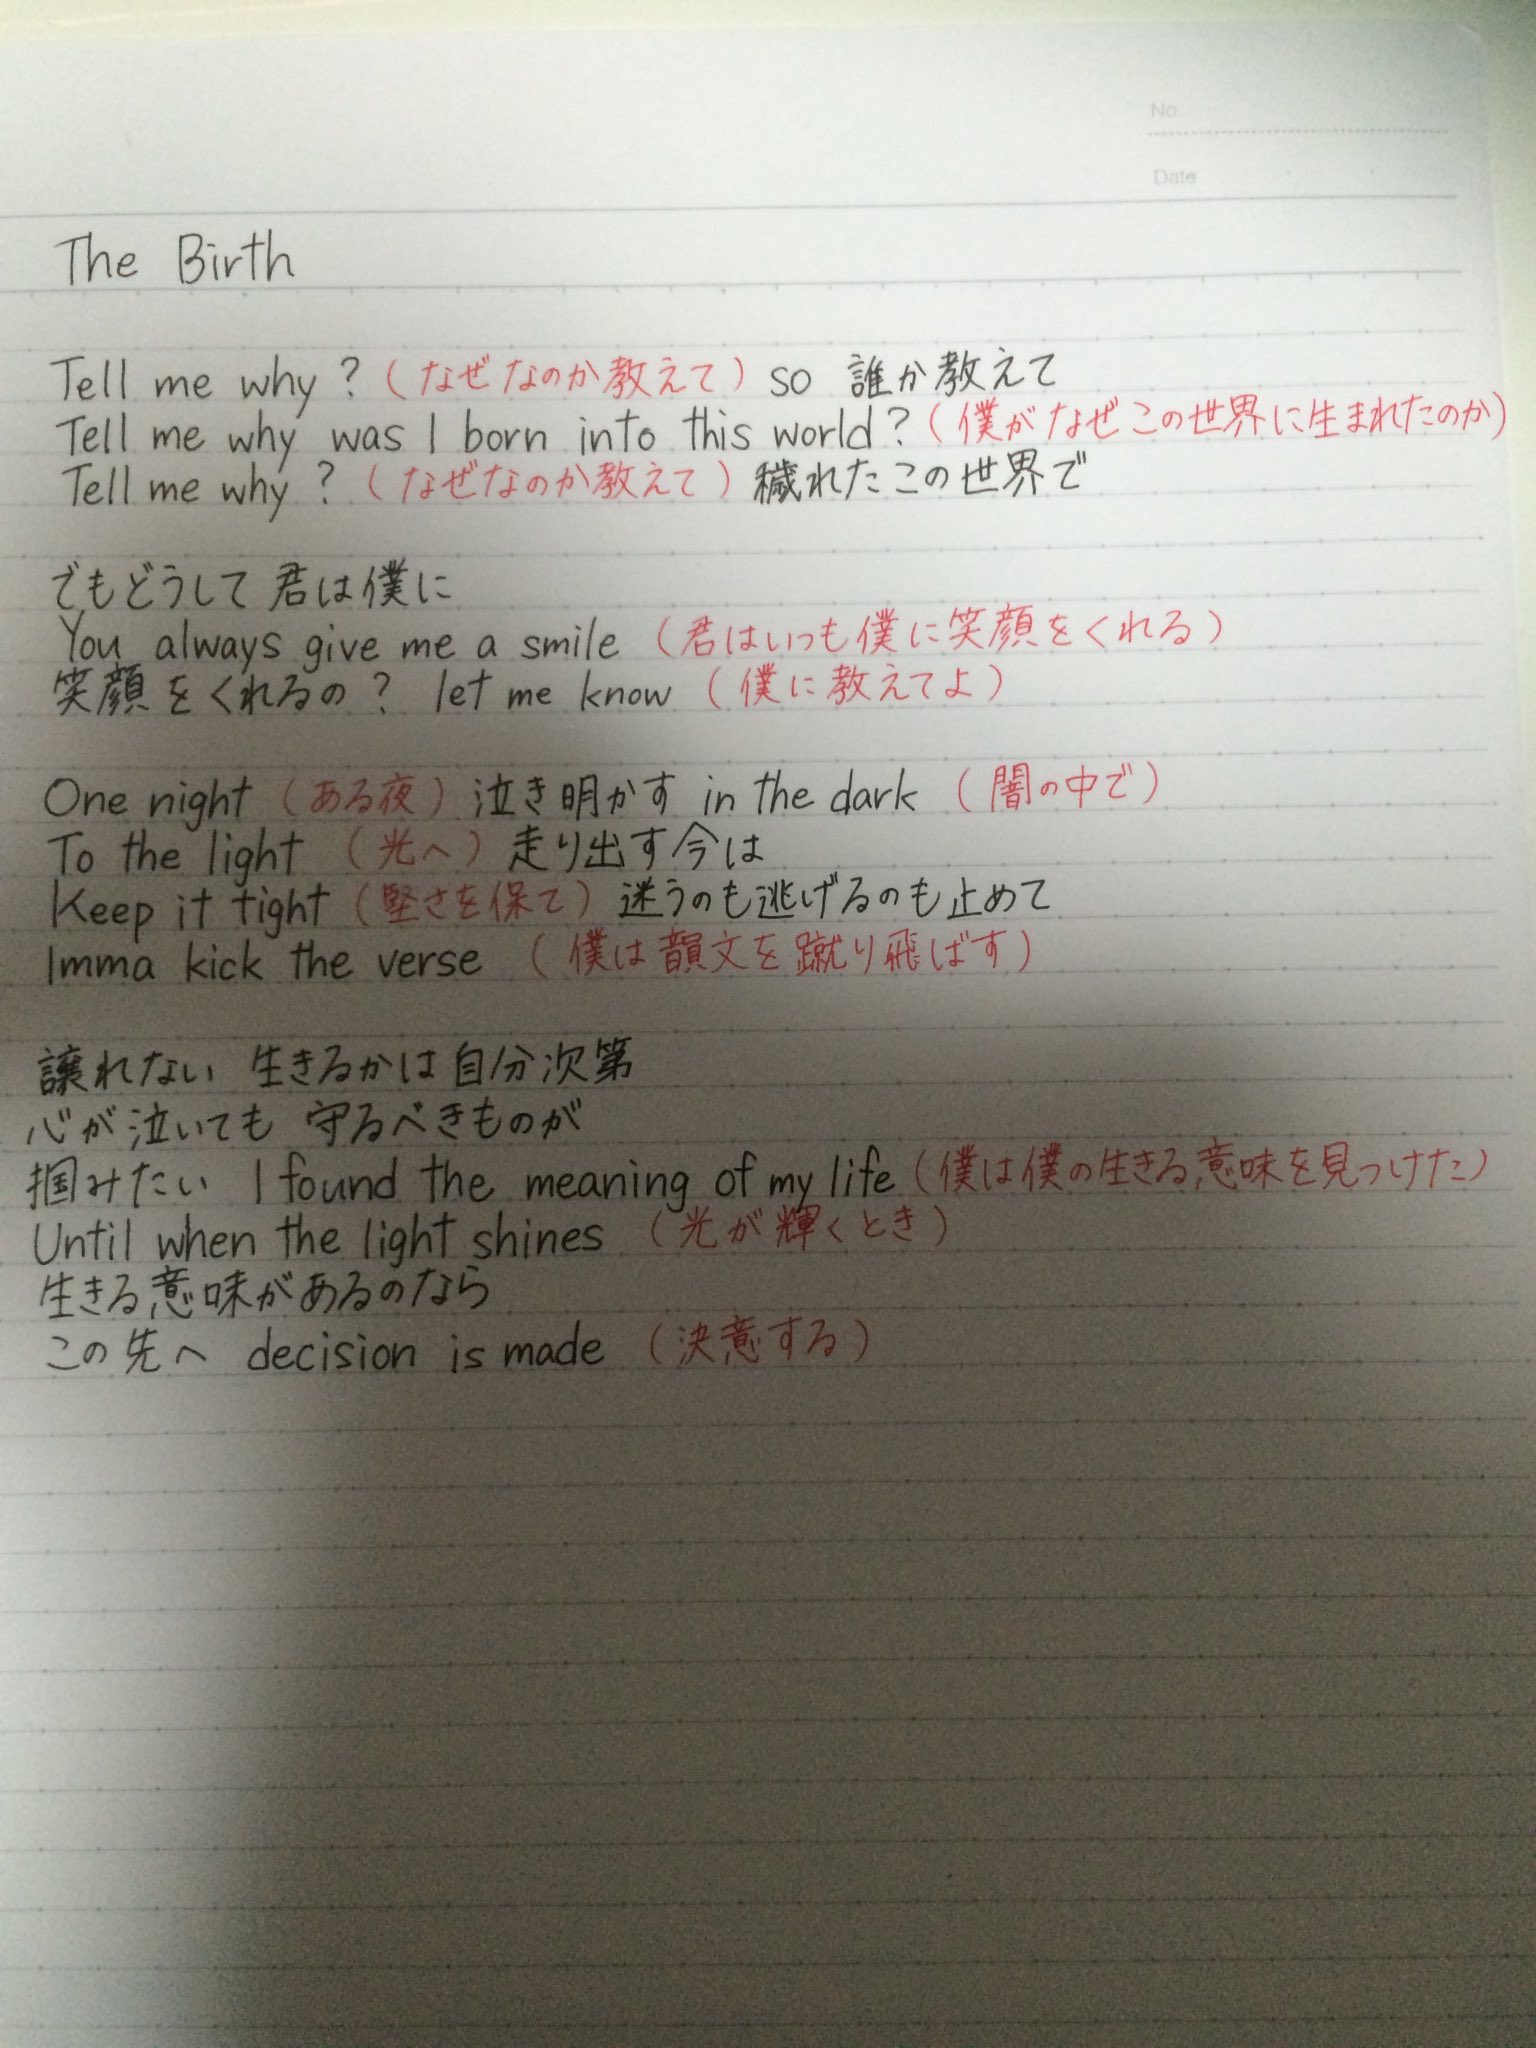 No.
Date
The Birth
Tell me why ? (なぜなのか教えて) so 誰か教えて
Tell me why was I born into this world ? (僕がなぜこの世界に生まれたのか)
Tell me why ? (なぜなのか教えて) 穢れたこの世界で
でもどうして 君は僕に
You always give me a smile (君はいつも僕に笑顔をくれる)
笑顔をくれるの ? let me know (僕に教えてよ)
One night (ある夜) 泣き明かす in the dark (闇の中で)
To the light (光へ) 走り出す今は
Keep it tight (堅さを保て) 迷うのも逃げるのも止めて
Imma kick the verse (僕は韻文を蹴り飛ばす)
譲れない 生きるかは自分次第
心が泣いても 守るべきものが
掴みたい I found the meaning of my life (僕は僕の生きる意味を見つけた)
Until when the light shines (光が輝くとき)
生きる意味があるのなら
この先へ decision is made (決意する)